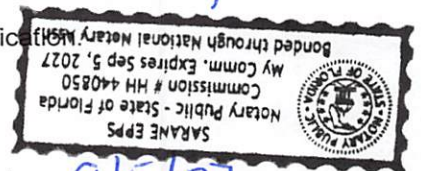 SARANE EPPS
Notary Public - State of Florida
Commission # HH 440850
My Comm. Expires Sep 5, 2027
Bonded through National Notary Assn.
NOTARY PUBLIC
STATE OF FLORIDA